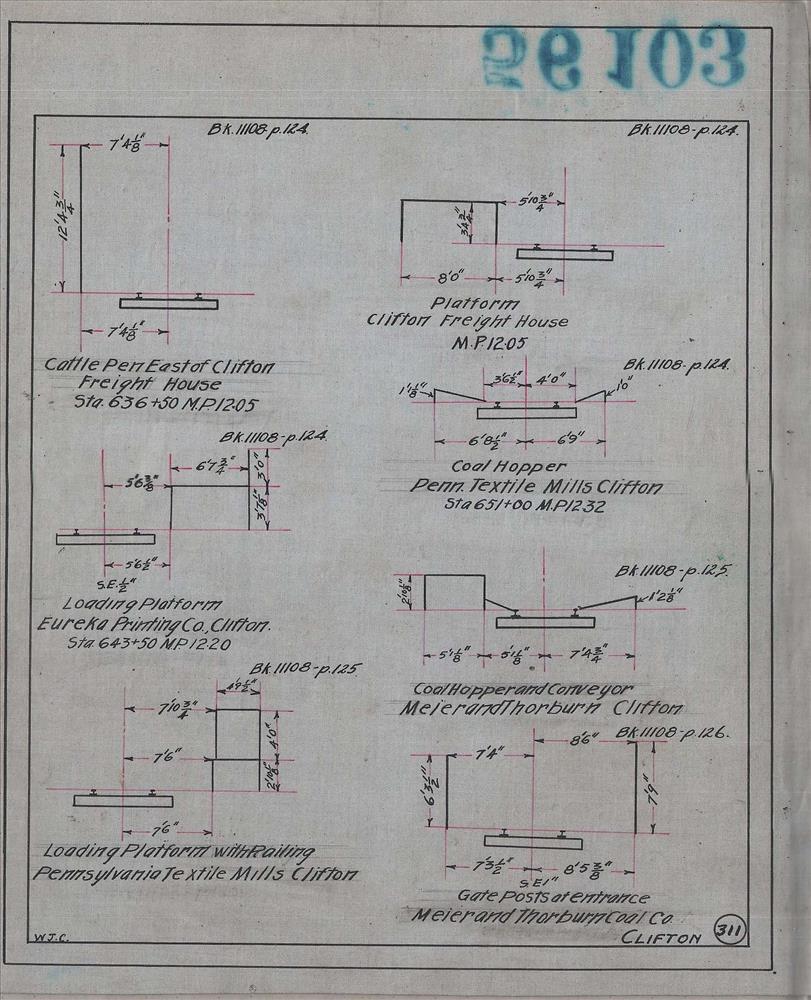 56 103
Bk.11108-p.124.
7'4⅛"
12'4¾"
7'4⅛"
Cattle Pen East of Clifton
Freight House
Sta. 636+50 M.P.12.05
Bk.11108-p.124.
5'10¾"
3'4¾"
8'0"
5'10¾"
Platform
Clifton Freight House
M.P.12.05
Bk.11108-p.124.
1'1⅛"
3'6½"
4'0"
1'0"
6'8½"
6'9"
Coal Hopper
Penn. Textile Mills Clifton
Sta 651+00 M.P.12.32
Bk.11108-p.124
6'7¾"
3'0"
5'6⅜"
3'7⅛"
5'6½"
S.E.½"
Loading Platform
Eureka Printing Co., Clifton.
Sta. 643+50 M.P.12.20
Bk.11108-p.125.
1'2⅛"
5'1⅛"
5'1⅛"
7'4¾"
Coal Hopper and Conveyor
Meier and Thorburn Clifton
Bk.11108-p.125.
4'9½"
7'10¾"
4'0"
7'6"
7'6"
Loading Platform with Railing
Pennsylvania Textile Mills Clifton
Bk.11108-p.126.
8'6"
7'4"
6'3½"
7'9"
7'3½"
8'5⅜"
S.E.1"
Gate Posts at entrance
Meier and Thorburn Coal Co.
Clifton
311
W.J.C.